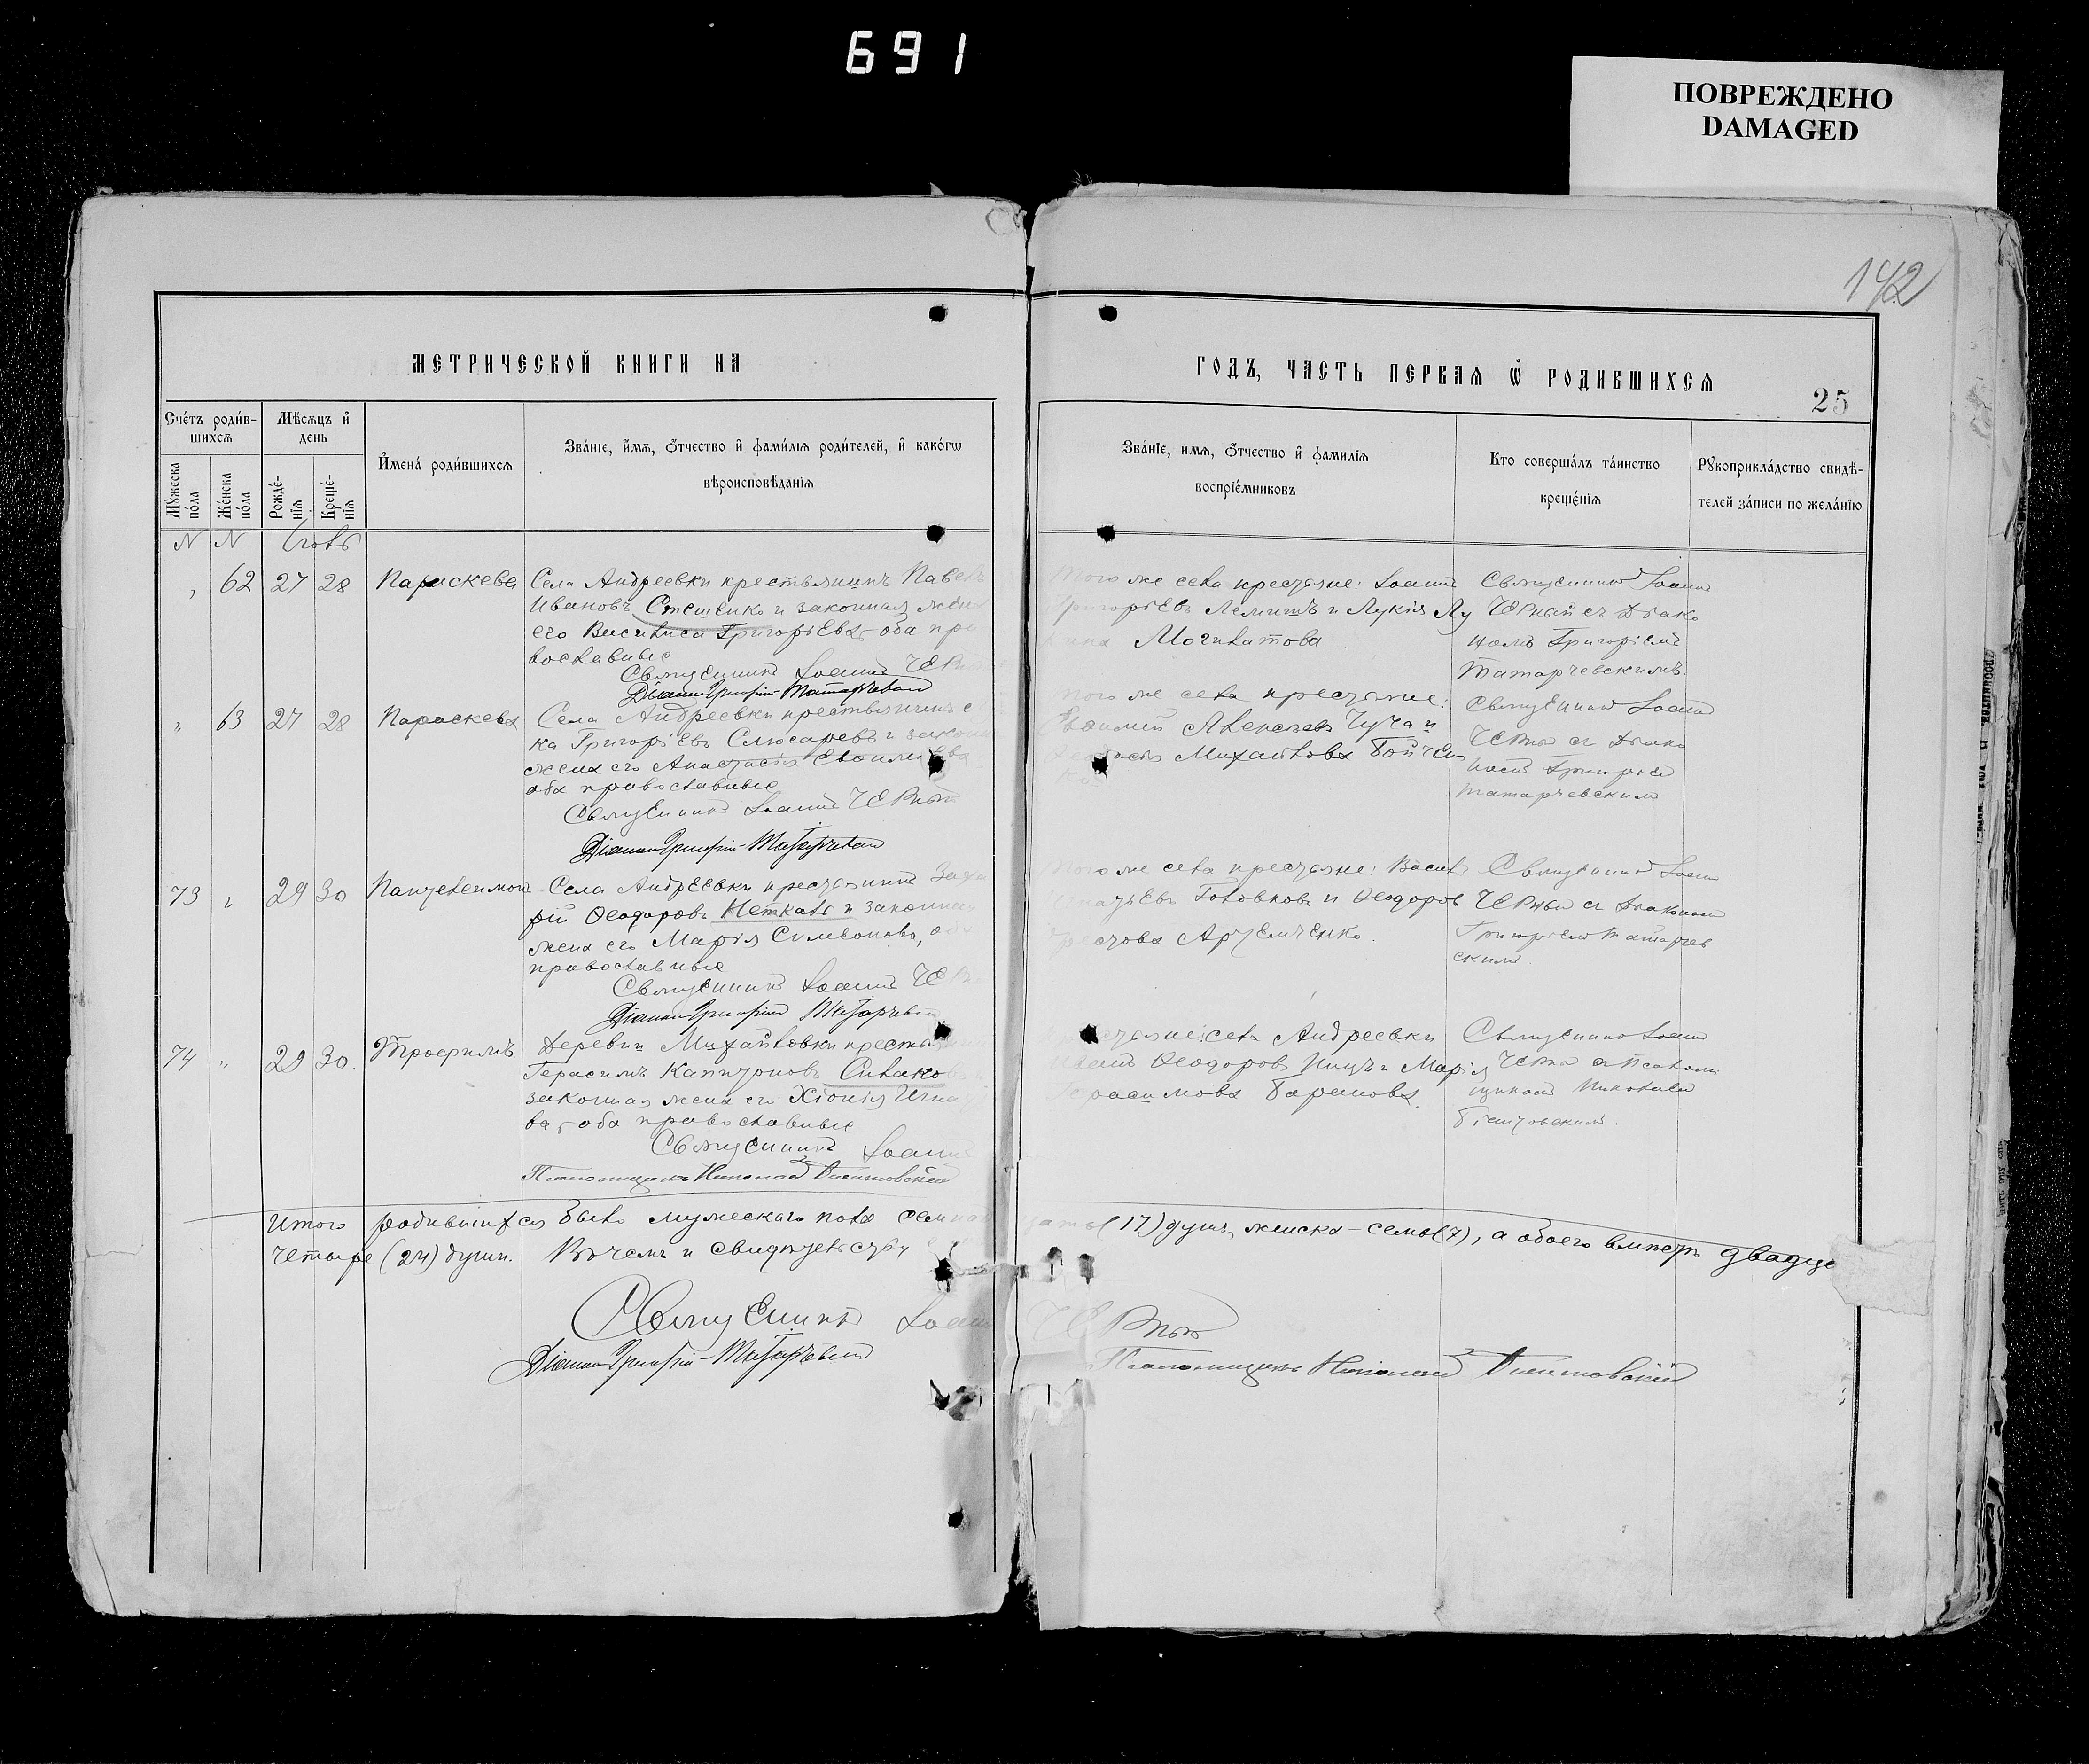 691
ПОВРЕЖДЕНО
DAMAGED
142
МЕТРИЧЕСКОЙ КНИГИ НА
ГОДЪ, ЧАСТЬ ПЕРВАЯ Ѿ РОДИВШИХСЯ
25
Счéтъ роди́в-
шихсѧ
Мѣсѧцъ и҆
день
И҆мена́ роди́вшихсѧ
Зва́нїе, и҆́мѧ, ѻ҆́тчество и҆ фами́лїѧ роди́телей, и҆ како́гѡ
вѣроисповѣ́данїѧ
Мꙋ́жеска
по́ла
Же́нска
по́ла
Рожде́-
нїѧ
Креще́-
нїѧ
Зва́нїе, имѧ, ѻ҆́тчество и҆ фамилїѧ
воспрїе́мниковъ
Кто соверша́лъ та́инство
креще́нїѧ
Рꙋкоприкла́дство свидѣ́-
телей за́писи по жела́нїю
N N Іюль
62 27 28 Параскева Села Андреевки крестьянинъ Павелъ
Ивановъ Стешенко и законная жена
его Василиса Григорьева, оба пра
вославные
Священникъ Іоаннъ
Діаконъ Григорій Татарчевскій
Того же села крестьяне: Іоаннъ
Григорьевъ Лемишъ и Лукія Лу
Могилатова
Священникъ Іоаннъ
Черный съ Діако
номъ Григоріемъ
Татарчевскимъ.
63 27 28 Параскева Села Андреевки крестьянинъ
ка Григорьевъ Слюсаревъ и законн
жена его Анастасія Евѳимова
оба православные
Священникъ Іоаннъ Черный
Діаконъ Григорій Татарчевскій
того же села крестьяне:
Евѳимій Алексѣевъ Чуча и
Михайлова Бойчен
ко
Священникъ Іоаннъ
Черный съ Діако
номъ Григоріемъ
Татарчевскимъ
73 29 30 Пантелеимонъ Села Андреевки крестьянинъ Заха
рій Ѳеодоровъ Неткаль и законная
жена его Марія Симеонова, оба
православные
Священникъ Іоаннъ
Діаконъ Григорій Татарчевскій
Того же села крестьяне: Василь
Головковъ и Ѳеодоров
Артемченко.
Священникъ Іоаннъ
Черный съ Діакономъ
Григоріемъ Татарчев
скимъ.
74 29 30. Трофимъ Деревни Михайловки кресть
Герасимъ Капитоновъ Сиваков
законная жена его Хіонія Игна
ва, оба православные
Священникъ Іоаннъ
Псаломщикъ Николай
села Андреевки
Ѳеодоров и Марія
Герасимова Баранова.
Священникъ Іоаннъ
Черный съ Псалом
щикомъ Николаемъ
Итого родившихся было мужескаго пола семнадцать (17) душъ, женска - семь (7), а обоего вмѣстѣ двадца
четыре (24) души. Въ чемъ и свидѣтельству
Священникъ Іоаннъ Черный
Діаконъ Григорій Татарчевскій
Псаломщикъ Николай